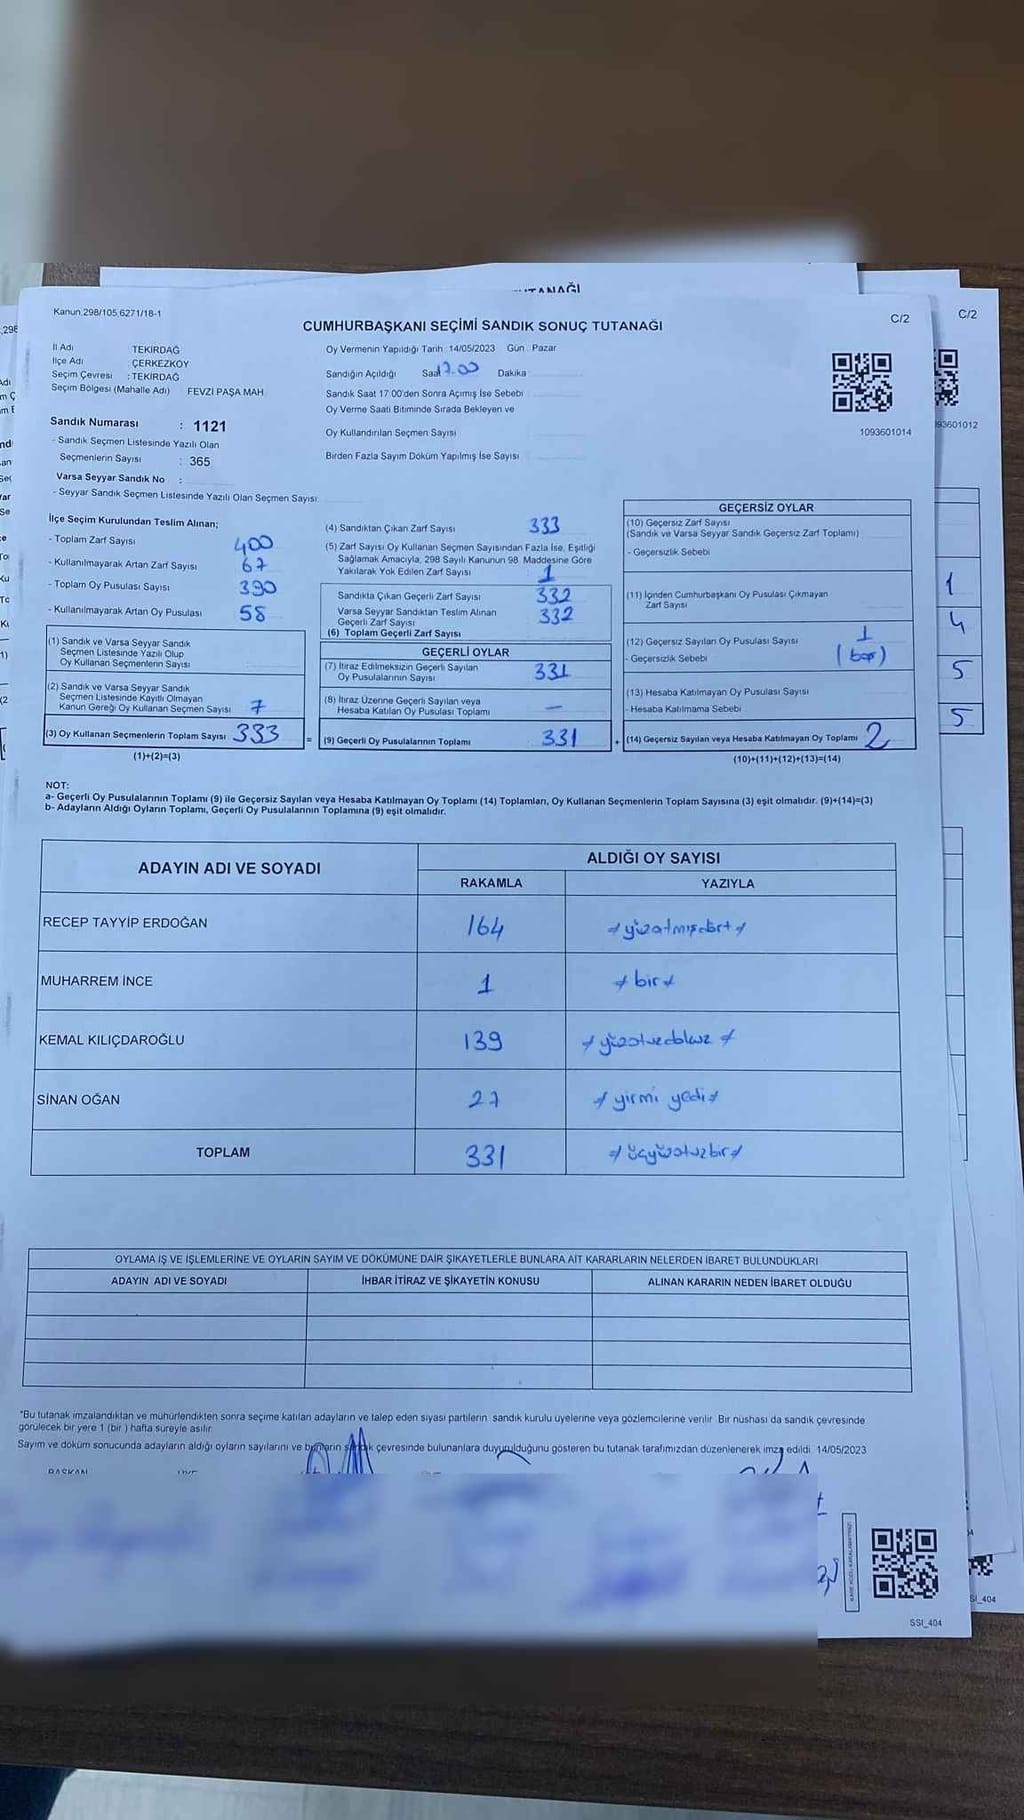 TUTANAĞI
Kanun.298/105,6271/18-1
C/2
C/2
CUMHURBAŞKANI SEÇİMİ SANDIK SONUÇ TUTANAĞI
İl Adı TEKİRDAĞ
İlçe Adı ÇERKEZKÖY
Seçim Çevresi : TEKİRDAĞ
Seçim Bölgesi (Mahalle Adı) FEVZİ PAŞA MAH.
Sandık Numarası : 1121
- Sandık Seçmen Listesinde Yazılı Olan
Seçmenlerin Sayısı : 365
Varsa Seyyar Sandık No :
- Seyyar Sandık Seçmen Listesinde Yazılı Olan Seçmen Sayısı:
Oy Vermenin Yapıldığı Tarih : 14/05/2023 Gün : Pazar
Sandığın Açıldığı Saat 17.00 Dakika
Sandık Saat 17:00'den Sonra Açımış İse Sebebi
Oy Verme Saati Bitiminde Sırada Bekleyen ve
Oy Kullandırılan Seçmen Sayısı
Birden Fazla Sayım Döküm Yapılmış İse Sayısı
1093601014
93601012
İlçe Seçim Kurulundan Teslim Alınan;
- Toplam Zarf Sayısı 400
- Kullanılmayarak Artan Zarf Sayısı 67
- Toplam Oy Pusulası Sayısı 390
- Kullanılmayarak Artan Oy Pusulası 58
(1) Sandık ve Varsa Seyyar Sandık
Seçmen Listesinde Yazılı Olup
Oy Kullanan Seçmenlerin Sayısı
(2) Sandık ve Varsa Seyyar Sandık
Seçmen Listesinde Kayıtlı Olmayan
Kanun Gereği Oy Kullanan Seçmen Sayısı 7
(3) Oy Kullanan Seçmenlerin Toplam Sayısı 333 =
(1)+(2)=(3)
(4) Sandıktan Çıkan Zarf Sayısı 333
(5) Zarf Sayısı Oy Kullanan Seçmen Sayısından Fazla İse, Eşitliği
Sağlamak Amacıyla, 298 Sayılı Kanunun 98. Maddesine Göre
Yakılarak Yok Edilen Zarf Sayısı 1
Sandıkta Çıkan Geçerli Zarf Sayısı 332
Varsa Seyyar Sandıktan Teslim Alınan
Geçerli Zarf Sayısı 332
(6) Toplam Geçerli Zarf Sayısı
GEÇERLİ OYLAR
(7) İtiraz Edilmeksizin Geçerli Sayılan
Oy Pusulalarının Sayısı 331
(8) İtiraz Üzerine Geçerli Sayılan veya
Hesaba Katılan Oy Pusulası Toplamı —
(9) Geçerli Oy Pusulalarının Toplamı 331 +
GEÇERSİZ OYLAR
(10) Geçersiz Zarf Sayısı
(Sandık ve Varsa Seyyar Sandık Geçersiz Zarf Toplamı)
- Geçersizlik Sebebi
(11) İçinden Cumhurbaşkanı Oy Pusulası Çıkmayan
Zarf Sayısı
(12) Geçersiz Sayılan Oy Pusulası Sayısı 1
- Geçersizlik Sebebi (boş)
(13) Hesaba Katılmayan Oy Pusulası Sayısı
- Hesaba Katılmama Sebebi
(14) Geçersiz Sayılan veya Hesaba Katılmayan Oy Toplamı 2
(10)+(11)+(12)+(13)=(14)
1
4
5
5
NOT:
a- Geçerli Oy Pusulalarının Toplamı (9) ile Geçersiz Sayılan veya Hesaba Katılmayan Oy Toplamı (14) Toplamları, Oy Kullanan Seçmenlerin Toplam Sayısına (3) eşit olmalıdır. (9)+(14)=(3)
b- Adayların Aldığı Oyların Toplamı, Geçerli Oy Pusulalarının Toplamına (9) eşit olmalıdır.
ADAYIN ADI VE SOYADI ALDIĞI OY SAYISI
RAKAMLA YAZIYLA
RECEP TAYYİP ERDOĞAN 164 yüzatmışdört
MUHARREM İNCE 1 bir
KEMAL KILIÇDAROĞLU 139 yüzotuzdokuz
SİNAN OĞAN 27 yirmi yedi
TOPLAM 331 üçyüzotuzbir
OYLAMA İŞ VE İŞLEMLERİNE VE OYLARIN SAYIM VE DÖKÜMÜNE DAİR ŞİKAYETLERLE BUNLARA AİT KARARLARIN NELERDEN İBARET BULUNDUKLARI
ADAYIN ADI VE SOYADI İHBAR İTİRAZ VE ŞİKAYETİN KONUSU ALINAN KARARIN NEDEN İBARET OLDUĞU
*Bu tutanak imzalandıktan ve mühürlendikten sonra seçime katılan adayların ve talep eden siyasi partilerin sandık kurulu üyelerine veya gözlemcilerine verilir. Bir nüshası da sandık çevresinde
görülecek bir yere 1 (bir) hafta süreyle asılır.
Sayım ve döküm sonucunda adayların aldığı oyların sayılarını ve bunların sandık çevresinde bulunanlara duyurulduğunu gösteren bu tutanak tarafımızdan düzenlenerek imza edildi. 14/05/2023
BAŞKAN ÜYE
SSI_404
SI_404